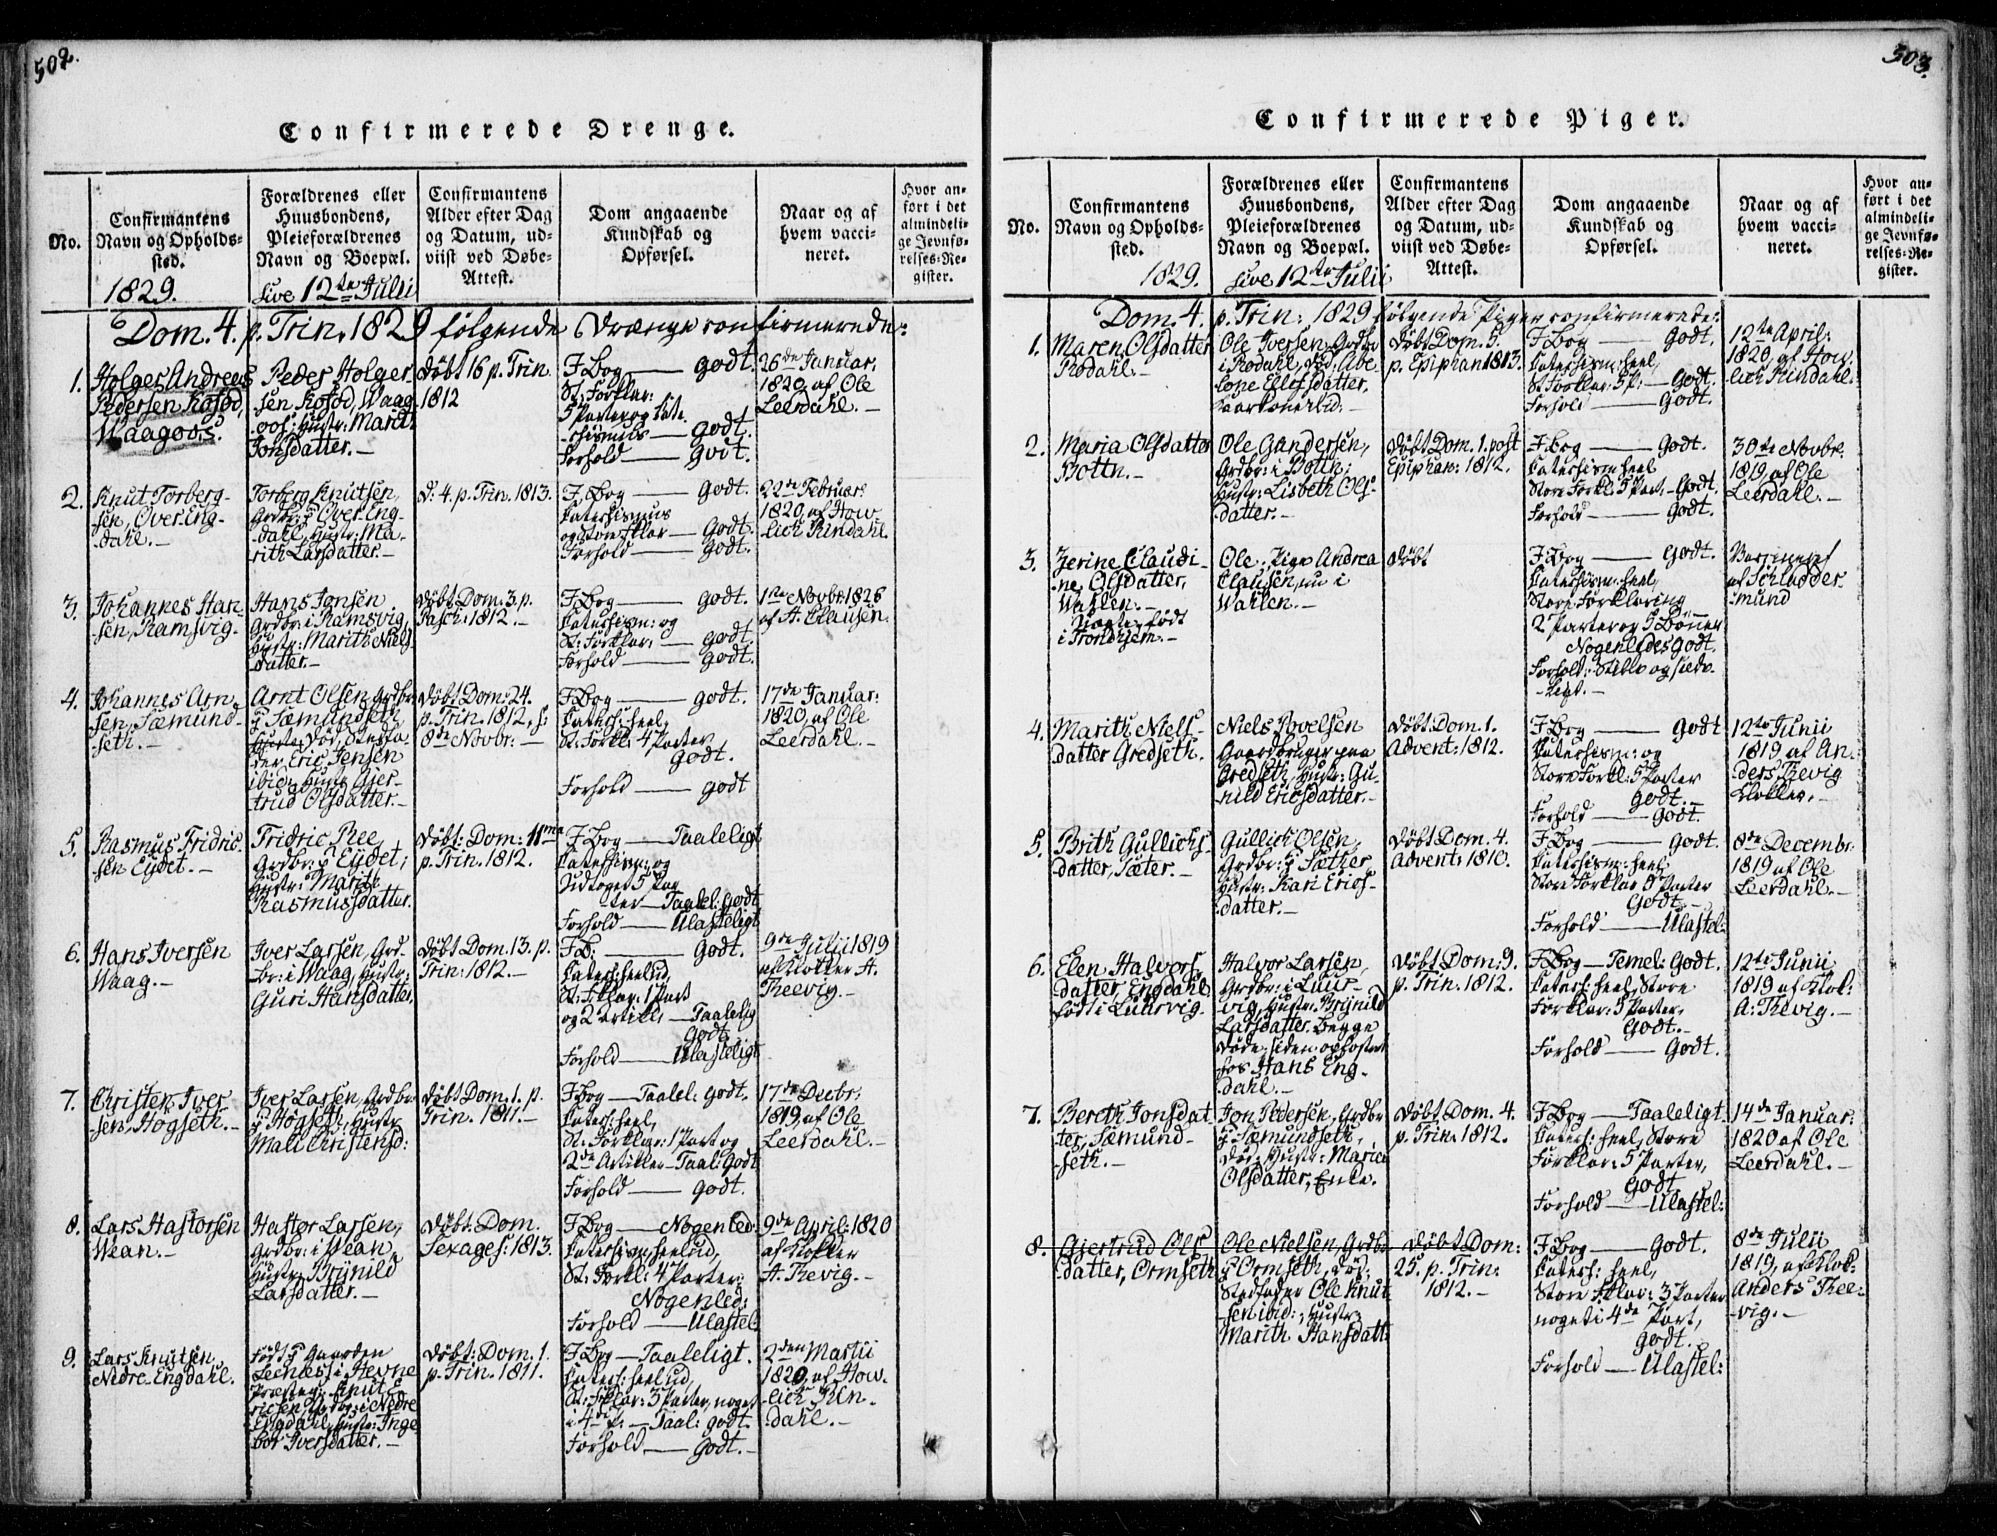 502.
Confirmerede Drenge.
No.
Confirmantens
Navn og Opholds-
sted.
1829.
Forældrenes eller
Huusbondens,
Pleieforældrenes
Navn og Boepæl.
sive 12te Julii
Confirmantens
Alder efter Dag
og Datum, ud-
viist ved Døbe-
Attest.
Dom angaaende
Kundskab og
Opførsel.
Naar og af
hvem vacci-
neret.
Hvor an-
ført i det
almindeli-
ge Jevnfø-
relses-Re-
gister.
Dom. 4. p. Trin. 1829 følgende Drænge confirmerede:
1.
Holger Andreas
Pedersen Kofod,
Waagoos.
Peder Holger-
sen Kofod, Waag-
oos: Hustr: Marit
Jonsdatter.-
Døbt 16 p. Trin.
1812
F. Bog — godt.
St: Forklar:
5 Parter og Cate-
chismus — godt.
Forhold — godt.
26de Januar,
1820, af Ole
Leerdahl.-
2.
Knut Torberg-
sen, Over Eng-
dahl.-
Torberg Knutsen,
Grdbr: på Over Eng-
dahl, Hustr: Ma-
rith Larsdatter.-
D: 4. p. Trin. 1813.
F. Bog — Godt.
Catechismus
og Store Fklar — Godt.
Forhold — Godt.
22de Februar:
1820, af How-
lich Rindahl.
3.
Johannes Han-
sen, Ramsvig.-
Hans Jonsen
Grdbr: i Ramsvig,
Hustr: Marith Niels
datter.-
Døbt Dom: 3. p.
Pasch: 1812.-
F. Bog — Godt.
Catechism: og
St: Forklar: — godt.
Forhold — Godt.
1te Novbr: 1826
af A. Clausen.
4.
Johannes Arn-
sen, Sæmund-
seth.-
Arnt Olsen, Grdbr:
på Sæmundseth,
død, Stedfa-
der Eric Jensen
ibid: Hustr: Gjer-
trud Olsdatter.-
Døbt Dom: 24.
p. Trin. 1812, s:
8de Novbr: —
F. Bog — godt.
Catech: heel,
St: Forkl: 4 Parter
Godt.
Forhold — godt
17de Januar:
1820, af Ole
Leerdahl.-
5.
Rasmus Fridric-
sen Eydet.-
Fridric Ree,
Grdbr: på Eydet,
Hustr: Marith
Rasmusdatter.
Døbt: Dom: 11ma
p. Trin. 1812.
F. Bog — Taaleligt
Catechism: og
Udtoget 5 Par-
ter — Taalel: Godt
Forhold — Ulasteligt
6.
Hans Iversen
Waag.-
Iver Larsen, Grd-
br: i Waag, Hustr:
Guri Hansdatter.
Døbt Dom. 13. p.
Trin: 1812.-
F. B: — Godt.
Catech: heel ud,
St: Fklar: 1 Part
og 2 Artikl, — Taalelig
Godt
Forhold — Ulasteligt
9de Julii 1819
af Klokker A.
Reevig.-
7.
Christen Iver-
sen, Høgseth.-
Iver Larsen, Grdbr:
på Høgseth, Hustr:
Mali Christensd:
Døbt Dom. 1. p.
Trin. 1811.-
F. Bog — Taalel: Godt.
Catech: heel,
St: Forklar: 1 Part og
2de Artikler — Taal: Godt
Forhold — Godt.
17de Decbr:
1819, af Ole
Leerdahl.-
8.
Lars Hastorsen
Wean.-
Hastor Larsen,
Grdbr: i Wean,
Hustr: Brynild
Larsdatter.-
Døbt: Dom.
Sexages: 1813.
F. Bog — Nogenled:
Catechism: heel ud,
St: Forkl: 4 Parter
Nogenled:
Forhold — Ulastel:
9de April: 1820
af Klokker
A. Revig.-
9.
Lars Knutsen
Nedre-Engdahl.
Født på Gaarden
Leenæs i Hevne
Præstegj: Knut E-
ricsen Grdbr: i Nedre
Engdahl, Hustr: Inge-
bor Iversdatter.-
Døbt: Dom. 1.
p. Trin. 1811.
F. Bog — Taaleligt.
Catech: heel ud,
St: Fklar: 3 Parter, noget
i 4de P: — Taal: godt.
Forhold — Godt.-
2den Martii
1820, af How-
lich Rin-
dahl.-
503.
Confirmerede Piger.
No.
Confirmantens
Navn og Opholds-
sted.
1829.
Forældrenes eller
Huusbondens,
Pleieforældrenes
Navn og Boepæl.
sive 12te Julii
Confirmantens
Alder efter Dag
og Datum, ud-
viist ved Døbe-
Attest.
Dom angaaende
Kundskab og
Opførsel.
Naar og af
hvem vacci-
neret.
Hvor an-
ført i det
almindeli-
ge Jevnfø-
relses-Re-
gister.
Dom. 4. p. Trin: 1829 følgende Piger confirmerede:
1.
Maren Olsdatter
Rødahl.-
Ole Iversen, Grdbr
i Rødahl, død, Abe-
lone Elefsdatter,
Kaarkone ibid:-
Døbt Dom. 5.
p. Epiphan 1813.
F. Bog — Godt.
Catechism: heel,
St. Forklar: 5 P: — Godt.
Forhold — Godt.
12te April:
1820, af How-
lich Rindahl.
2.
Maria Olsdatter
Bottn.-
Ole Gundersen,
Grdbr: i Bottn:
Hustr: Lisbeth Ols-
datter.-
Døbt Dom. 1. post
Epiphan: 1812.
F. Bog — Godt.
Catechism: heel
Store Forkl: 5 Part: — Godt.
Forhold — Godt.
30te Novbr.
1819, af Ole
Leerdahl.-
3.
Zerine Claudi-
ne Olsdatter,
Wahlen.-
Uægte, født
i Trondhjem.-
Ole. Pige Andrea
Clausen, nu i
Wahlen.-
Døbt
F. Bog — Godt.
Catechism: heel,
Store Forklaring
2 Parter og 5 Bønner
Nogenledes Godt.
Forhold: Stille og sæde-
ligt.-
Vaccineret
af Schlødder-
mund
4.
Marith Niels-
datter Gredseth.
Niels Povelsen
Gaardbruger paa
Gredseth, Hustr: Gu-
nild Ericsdatter.-
Døbt: Dom. 1.
Advent: 1812.
F. Bog — Godt
Catechism: og
Store Forkl: 5 Parter
Godt.-
Forhold — Godt.
12te Junii
1819 af An-
ders Revig
Klokker.-
5.
Brith Gullichs-
datter, Sæter.-
Gullich Olsen,
Grdbr: på Sætter,
Hustr: Kari Erics-
datter.-
Døbt Dom. 4.
Advent: 1810.
F. Bog — Godt.
Catechism: heel
Store Forklar 5 Parter
Godt.-
Forhold — Ulastel:
8de Decembr:
1819 af Ole
Leerdahl.-
6.
Elen Halvors-
datter Engdahl,
født i Luursvig.-
Halvor Larsen,
Grdbr: i Luur-
svig, Hustr: Brynild
Larsdatter, begge
døde, siden opfostret
hos Hans Eng-
dahl.-
Døbt Dom: 9.
p. Trin. 1812.
F. Bog — Temel: Godt.
Catech: heel, Store
Forklar: 5 Parter,
Godt.-
Forhold — Godt.
12te Junii
1819 af Klok:
A: Revig.-
7.
Bereth Jonsdat-
ter, Sæmund-
seth.-
Jon Pedersen, Grdbr
på Sæmundseth,
død; Hustr: Marie
Olsdatter, Enke.
Døbt Dom. 4.
p. Trin. 1812.
F. Bog — Taaleligt.
Catech: heel, Store
Forklar: 5 Parter,
Godt
Forhold — Ulastel:
14de Januar:
1820 af Ole
Leerdahl.-
8.
Gjertrud Ols-
datter, Ormseth
Ole Nielsen, Grdbr
på Ormseth, død;
Stedfader Ole Knut-
sen ibid: Hustr:
Marith Hansdatt:
Døbt Dom:
25. p. Trin:
1812.-
F. Bog — Godt.
Catech: heel,
Store Fklar: 3 Parter
noget i 4de Part,
Godt.
Forhold — Ulastel:
8de Julii
1819, af Klok:
Anders Ree-
vig.-